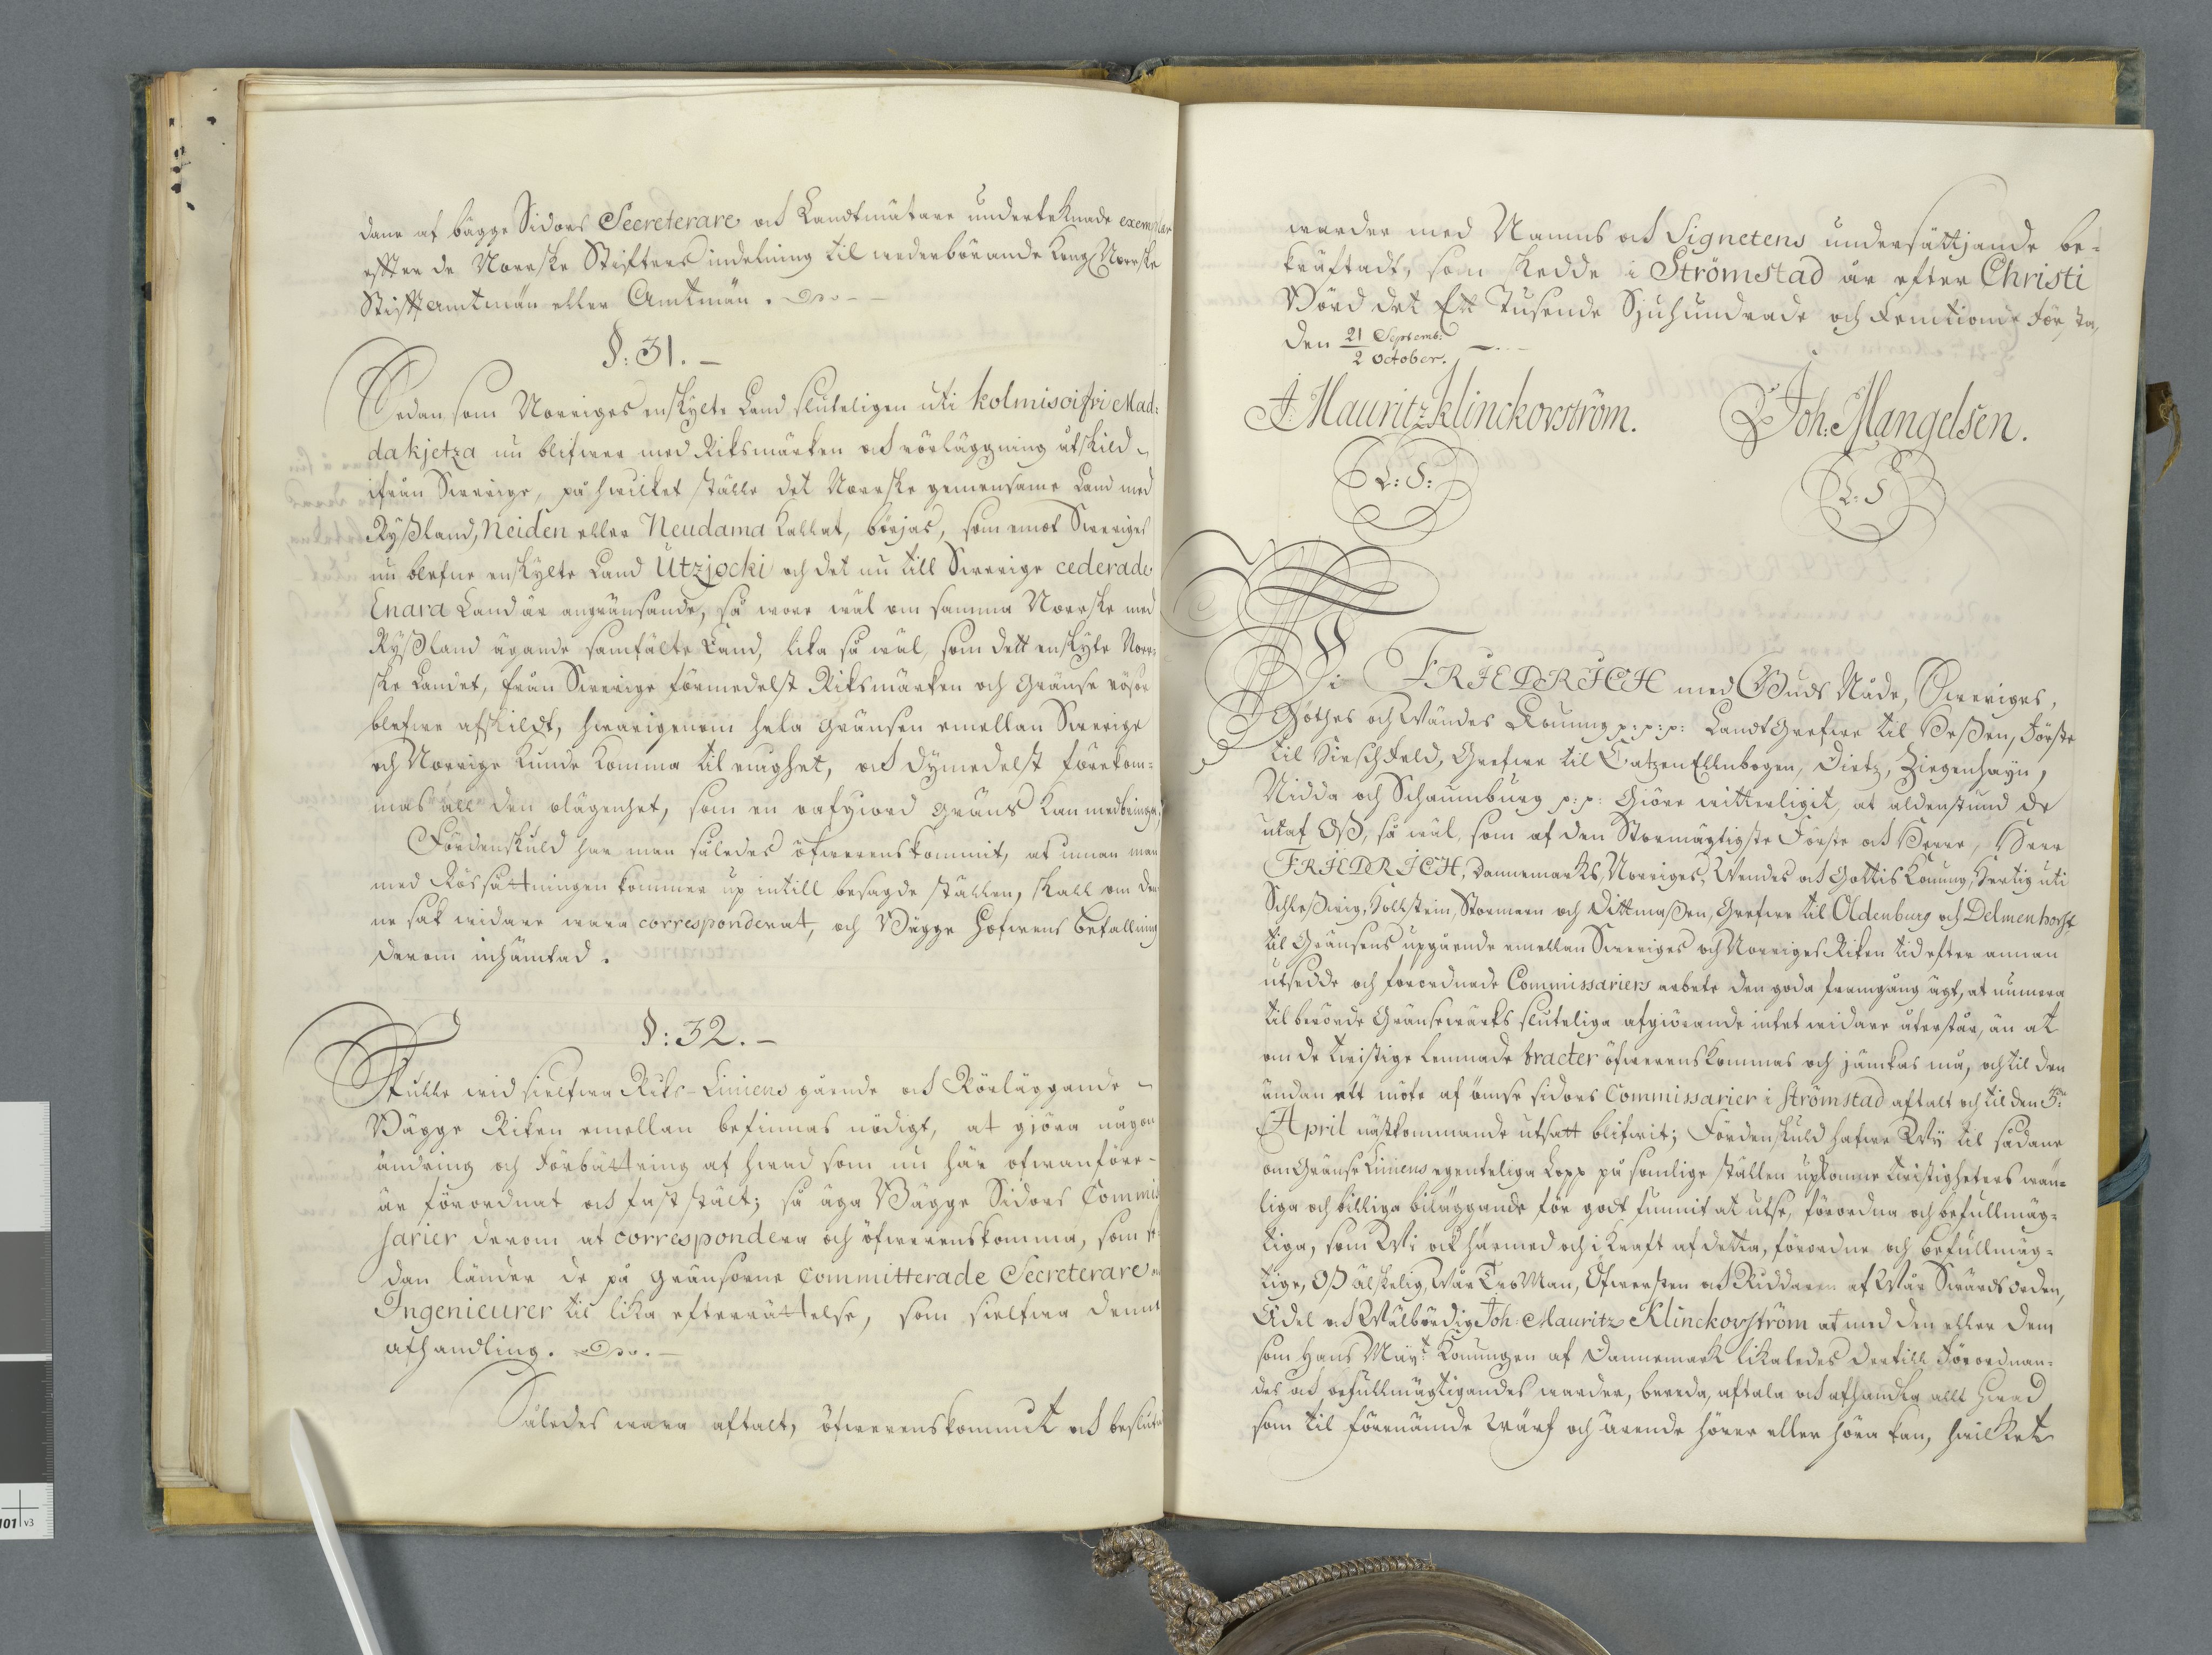 dane af bägge Sidors Secreterare och Landtmätare underteknade exemplar
effter de Norrske Stifters indelning til wederbörande Kongl. Norrske
Stifftamtmän eller Amtmän.
§: 31.
Sedan som Norriges enskylte Land sluteligen uti Kolmisoifvi Mad=
dakjetza nu blifwer med Riksmärken och rörläggning utskild
ifrån Swerige, på hwilket ställe det Norrske gemensame Land med
Ryßland, Neiden eller Neudama kallat, börjas, som emot Sweriges
nu blefne enskylte Land Utzjocki och det nu till Swerige cederade
Enara Land är angränsande, så wore wäl om samma Norrske med
Ryßland ägande samfälte Land, lika så wäl, som dett enskylte Norr=
ske Landet, från Swerige förmedelst Riksmärken och Gränse rösor
blefwe afskildt, hwarigenom hela Gränsen emellan Swerige
och Norrige kunde komma til enighet, och dymedelst förekom=
mas all den olägenhet, som en oafgiord gräns kan medbringa;
Fördenskuld har man således öfwerenskommit, at innan man
med Rössättningen kommer up intill besagde ställen, skall om den
ne sak widare wara correspondenat, och Bägge Hofwens befallning
derom inhämtad.
§: 32.
Skulle wid sielfwa Riks-Liniens gående och Rörläggande
Bägge Riken emellan befinnas nödigt, at gjöra någon
ändring och Förbättring af hwad som nu här ofwanföre
är förordnat och fastställt; så äga Bägge Sidors Commis
sarier derom at correspondera och öfwerenskomma, som se=
dan länder de på gränsorne committerade Secreterare och
Ingenieurer til lika efterrättelse, som sielfwa denne
afhandling.
Således wara aftalt, öfwerenskommit och beslutit
warder med Namns och Signetens undersättjande be=
kräftadt, som skedde i Strömstad år efter Christi
Börd det Ett Tusende Sjuhundrade och Femtionde Första,
den 21 Septemb:
2 October.
J. Mauritz Klinckowström. Joh: Mangelsen.
L: S: L: S
Wi FRIEDRICH med Guds Nåde, Sweriges,
Göthes och Wändes Konung p: p: p: LandtGrefwe til Heßen, Förste
til Hirschfeld, Grefwe til CatzenEllnbogen, Dietz, Ziegenhayn,
Nidda och Schaumburg p: p: Giöre witterligit, at aldenstund de
utaf Oß, så wäl, som af den Stormägtigste Förste och Herre, Herr
FRIEDRICH, Dannemarks, Norriges, Wendes och Gottis Konung, Hertig uti
Schleßwig, Hollstein, Stormern och Dittmaßen, Grefwe til Oldenburg och Delmenhorst,
til Gränsens upgående emellan Sweriges och Norriges Riken tid efter annan
utsedde och forordnade Commissariers arbete den goda framgång ägt, at numera
til berörde Gränsewärks sluteliga afgiörande intet widare återstår, än at
om de twistige lemnade tracter öfwerenskommas och jämkas må, och til den
ändan ett möte af ömse sidors Commissarier i Strömstad aftalt och til den 3ne
April nästkommande utsatt blifwit; Fördenskuld hafwe Wij til sådane
om Gränse Liniens egenteliga Lopp på somlige ställen upkomne twistigheters wän=
liga och billiga biläggande för godt funnit at utse, förordna och befullmäg=
tiga, som Wi ock härmed och i kraft af detta, förordne och befullmäg=
tige, Oß älskelig, Wår TroMan, Öfwersten och Riddaren af Wår Swärds orden,
Edel och Wälbördig Joh: Mauritz Klinckowström at med den eller dem
som Hans Maij:t Konungen af Dannemark likaledes dertill Förordnan=
des och befullmägtigandes warder, bereda, aftala och afhandla allt hwad
som til förenämde wärf och ärende hörer eller höra kan, hwilket